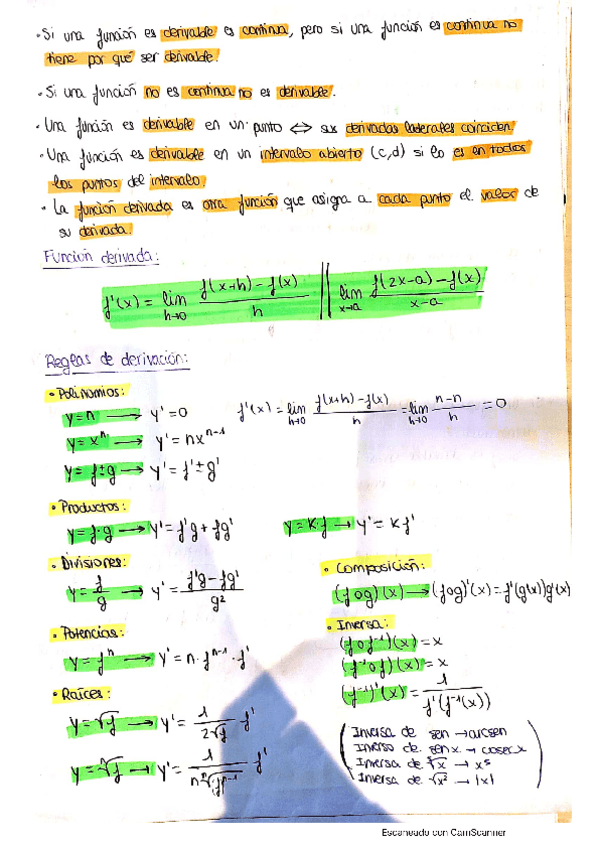 · Si una función es derivable es continua, pero si una función es continua no
tiene por qué ser derivable.
· Si una función no es continua no es derivable.
· Una función es derivable en un punto ⇔ sus derivadas laterales coinciden.
· Una función es derivable en un intervalo abierto (c,d) si lo es en todos
los puntos del intervalo.
· La función derivada es otra función que asigna a cada punto el valor de
su derivada.
Función derivada:
f'(x) = lim h→0 f(x+h) - f(x) / h || lim x→a f(2x-a) - f(x) / x-a
Reglas de derivación:
· Polinomios:
y = n → y' = 0 f'(x) = lim h→0 f(x+h) - f(x) / h = lim h→0 n-n / h = 0
y = xⁿ → y' = nxⁿ⁻¹
y = f±g → y' = f'±g'
· Productos:
y = f·g → y' = f'g + fg' y = k·f → y' = kf'
· Divisiones:
y = f/g → y' = f'g - fg' / g²
· Composición:
(f o g)(x) → (f o g)'(x) = f'(g(x))g'(x)
· Potencias:
y = fⁿ → y' = n·fⁿ⁻¹·f'
· Inversa:
(f o f⁻¹)(x) = x
(f⁻¹ o f)(x) = x
(f⁻¹)'(x) = 1 / f'(f⁻¹(x))
· Raíces:
y = √f → y' = 1 / 2√f · f'
y = ⁿ√f → y' = 1 / n ⁿ√fⁿ⁻¹ · f'
Inversa de sen → arcsen
Inversa de senx → cosecx
Inversa de ⁵√x → x⁵
Inversa de √x² → |x|
Escaneado con CamScanner